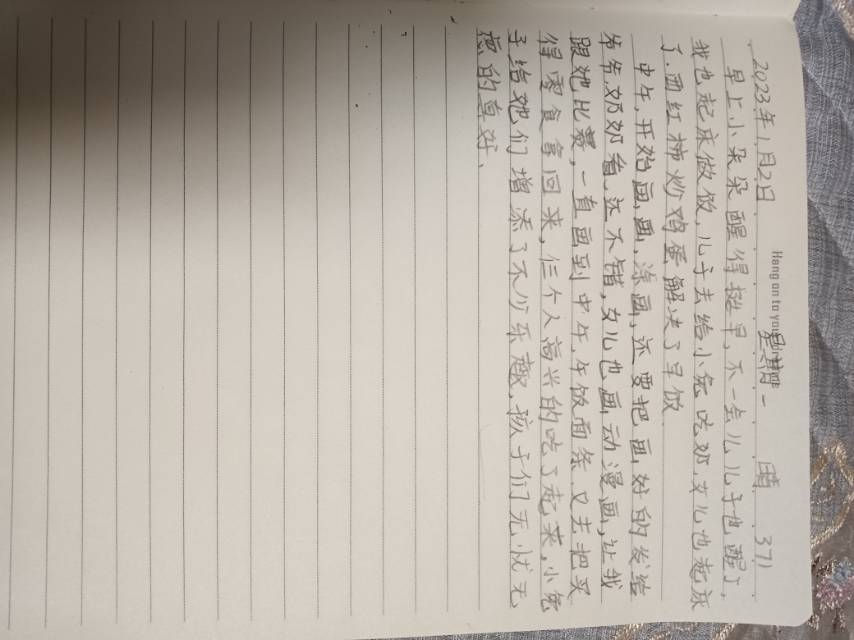 Hang on to you
2023年1月2日 星期一 晴 371
早上小朵朵醒得挺早,不一会儿儿子也醒了,
我也起床做饭,儿子去给小兔吃奶,女儿也起床
了.西红柿炒鸡蛋解决了早饭
中午,开始画,画,涂画,还要把画好的发给
爷爷,奶奶看,还不错,女儿也画动漫画,让我
跟她比赛,一直画到中午,午饭面条又去把买
得零食拿回来,仨个人高兴的吃了起来,小兔
子给她们增添了不少乐趣,孩子们无忧无
虑的真好、